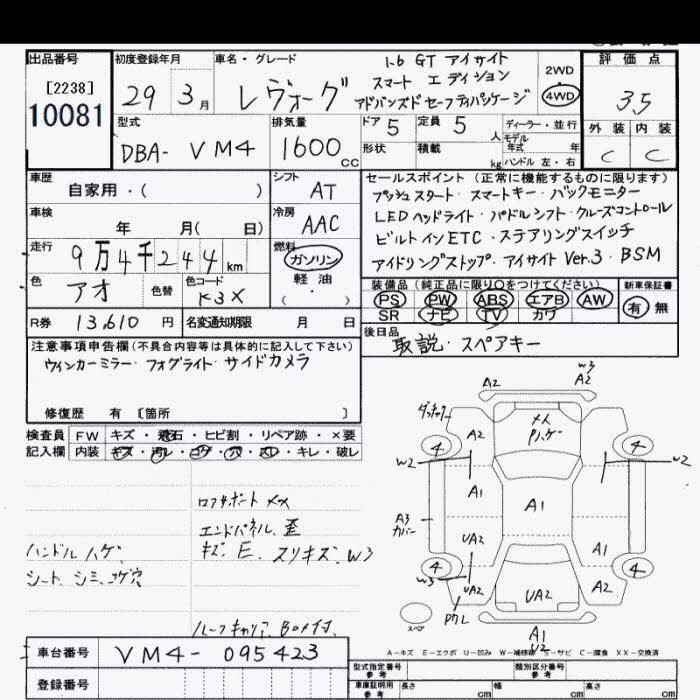 出品番号
[2238]
10081
初度登録年月
29 3月
車名・グレード
レヴォーグ
1.6 GT アイサイト
スマート エディション
アドバンスドセーフティパッケージ
2WD
4WD
評価点
3.5
外装 内装
C C
型式
DBA- VM4
排気量
1600cc
ドア 5
定員 5人
形状
積載 kg
ディーラー・並行
モデル年式 年
ハンドル 左・右
車歴
自家用・( )
シフト
AT
車検
年 月( 日)
冷房
AAC
走行
9万4千244km
燃料
ガソリン
軽油
( )
色
アオ
色替
色コード
K3X
R券 13,610円
名変通知期限 月 日
セールスポイント(正常に機能するものに限ります)
プッシュスタート・スマートキー・バックモニター
LEDヘッドライト・パドルシフト・クルーズコントロール
ビルトインETC・ステアリングスイッチ
アイドリングストップ・アイサイト Ver.3・BSM
装備品(純正品に限り○をつけてください)
PS PW ABS エアB AW
SR ナビ TV カワ
新車保証書
有 無
後日品
取説・スペアキー
注意事項申告欄(不具合内容等は具体的に記入して下さい)
ウィンカーミラー・フォグライト・サイドカメラ
修復歴 有 [箇所 ]
検査員記入欄
FW キズ・飛石・ヒビ割・リペア跡・×要
内装 キズ・汚レ・コゲ・穴・スレ・キレ・破レ
エンドパネル歪
キズ、E、スリキズ、W3
ハンドルハゲ
シート、シミ、コゲ穴
A2
W3
A2
A2
A2
4
4
W2
W2
A1
A1
A3
カバー
UA2
A1
4
4
W3
UA2
UA2
A2
スペア
A1
A-キズ E-エクボ U-凹み W-補修跡 S-サビ C-腐食 XX-交換済
車台番号
VM4-095423
登録番号
型式指定番号
参考
類別区分番号
参考
車庫証明用
参考
長さ cm
幅 cm
高さ cm